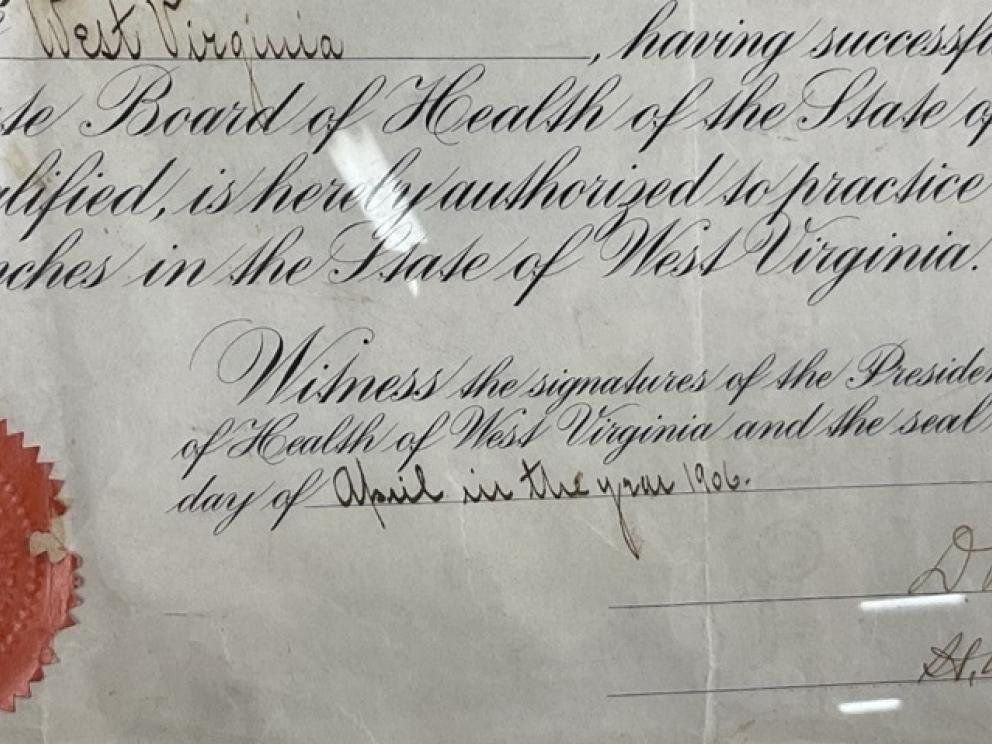 West Virginia, having successfu
te Board of Health of the State of
alified, is hereby authorized to practice
nches in the State of West Virginia.
Witness the signatures of the Presiden
of Health of West Virginia and the seal
day of April in the year 1906.
D.
H.